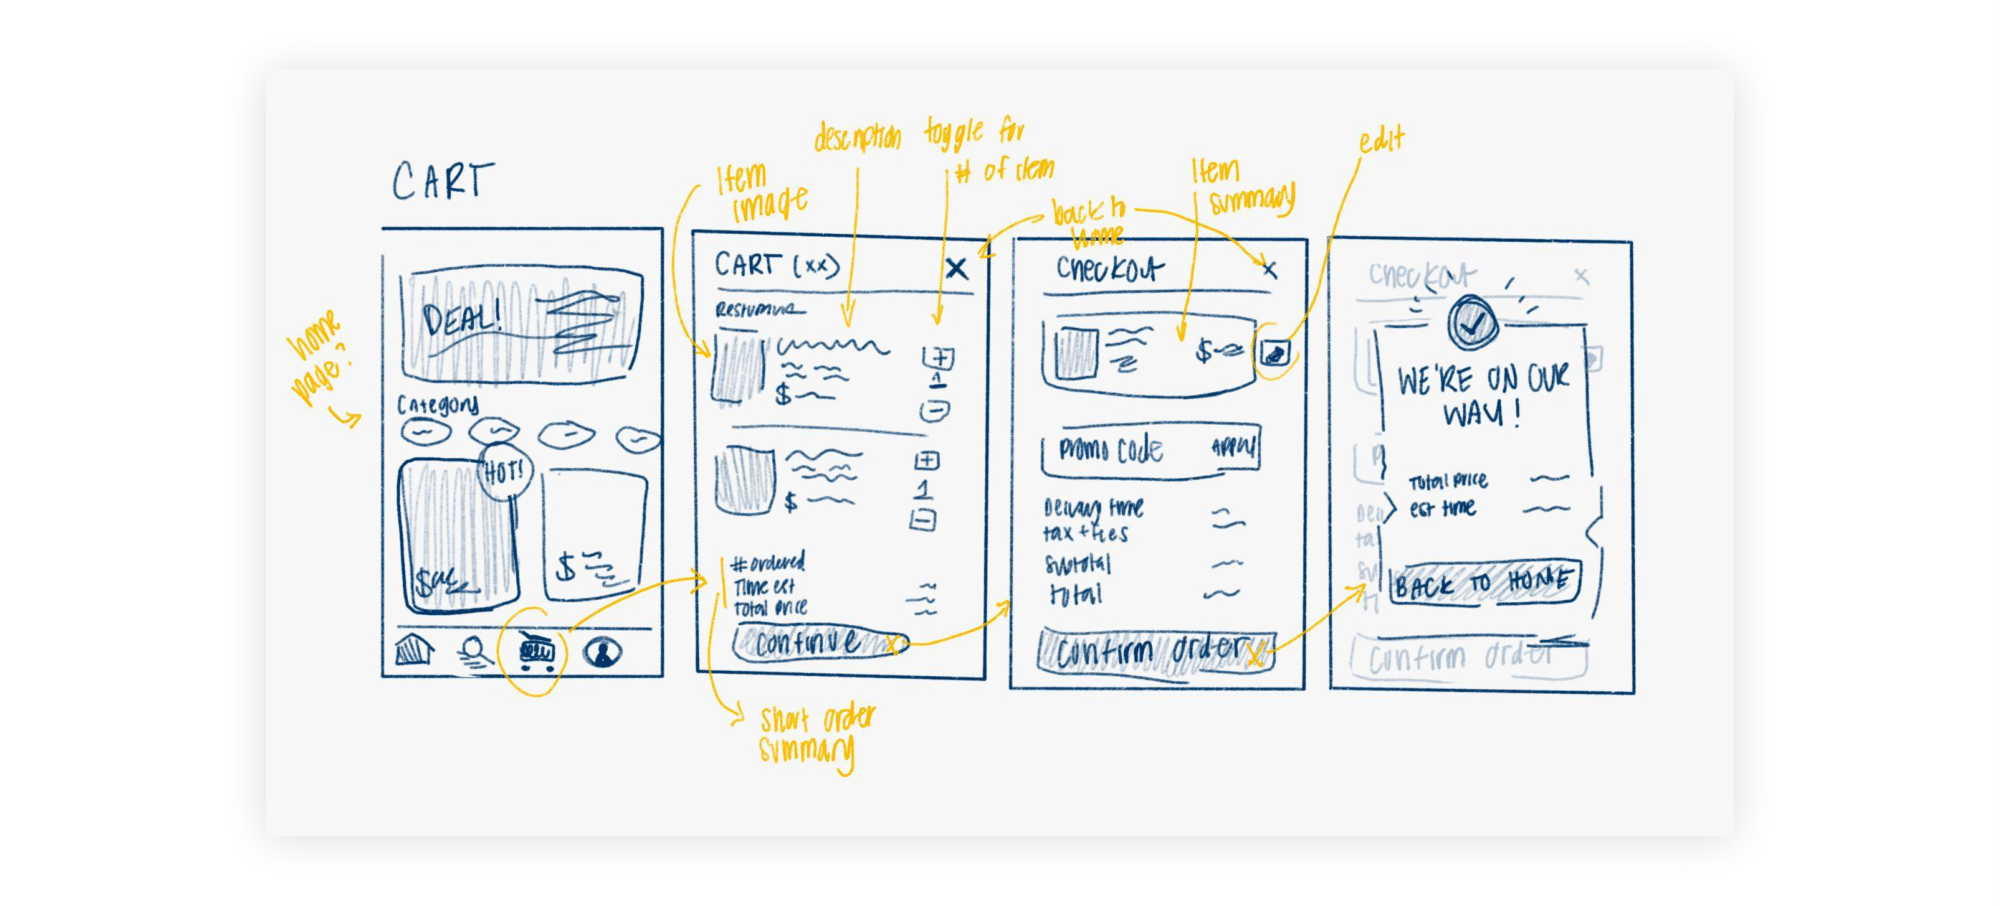 CART
home
page?
DEAL!
Category
HOT!
$
$
Item
image
description
toggle for
# of item
back to
home
CART (xx)
X
$
+
1
-
$
+
1
-
# ordered
Time est
Total price
Continue
short order
summary
Item
summary
edit
Checkout
x
$
Promo Code APPLY
Delivery time
tax + fees
Subtotal
total
Confirm order
x
Checkout
x
WE'RE ON OUR
WAY!
Total price
est time
BACK TO HOME
Confirm order